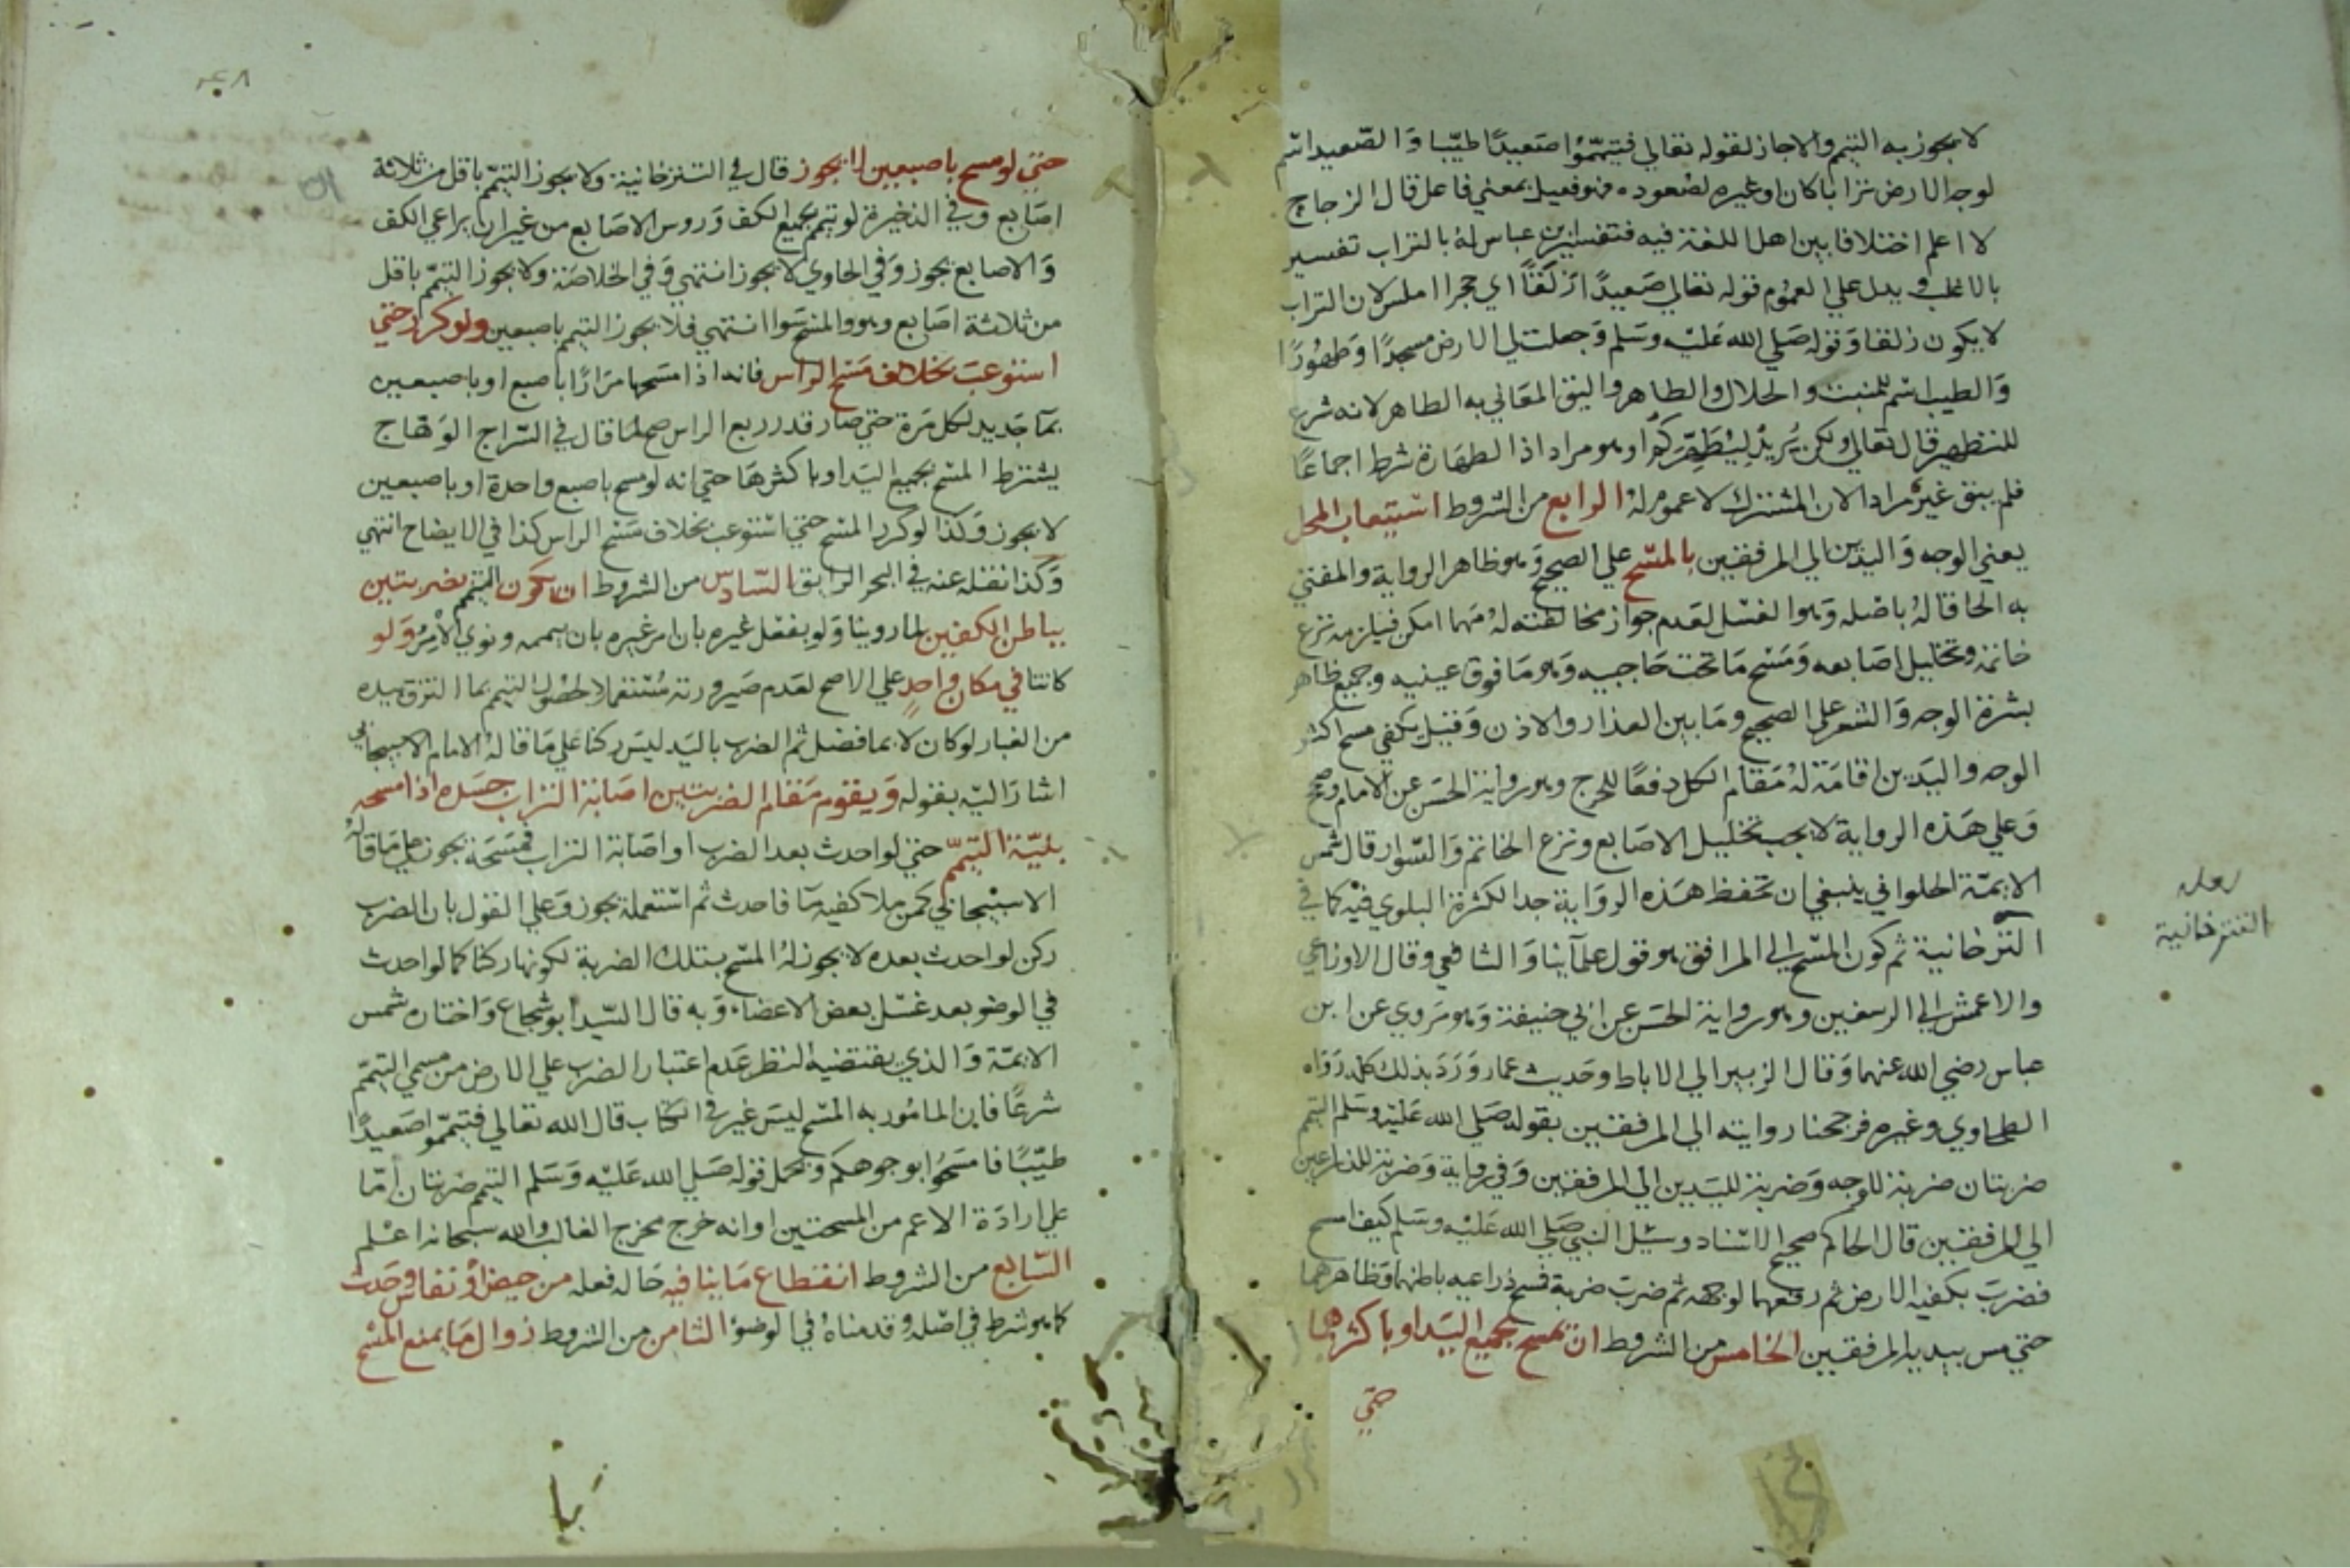 لا يجوز به التيمم والا جاز لقوله تعالي فتيمموا صعيدًا طيبا وَالصّعيد اسم
لوجه الارض ترابا كان او غيره لصعوده فهو فعيل بمعني فاعل قال الزجاج
لا اعلم اختلافا بين اهل اللغة فيه فتفسير ابن عباس لهُ بالتراب تفسير
بالاغلب ويدل علي العموم قوله تعالي صَعيدًا زلَقًا اي حجرا املس لان التراب
لا يكون زلقا وَقوله صَلي الله عَليْه وسَلم وَجعلت لي الارض مسجدًا وَطهورًا
وَالطيب اسْم للمنبت والحلال والطاهر واليق المعَاني به الطاهر لانه شرع
للتطهير قال تعالي ولكن يُريدُ لِيُطَهِّرَكُم او هو مراد اذ الطهَارة شرط اجماعًا
فلم يبق غيرهُ مرادا لان المشترك لا عموم لهُ الرابع من الشروط اسْتيعاب المحل
يعني الوجه وَاليدين الي المرفقين بالمسْح علي الصحيح وَهو ظاهر الرواية والمفتي
به الحاقا لهُ باصْله وَهو الغسْل لعَدم جواز مخالفته لهُ مَهما امكن فيلزمه نزع
خاتمه وتخليل اصَابعه وَمَسْح مَا تحت حَاجبيه وَهو مَا فوق عينيه وجميع ظاهر
بشرة الوجه وَالشعر علي الصحيح ومَا بين العذار والاذن وَقيل يكفي مسح اكثر
الوجه واليَدين اقامَة لهُ مَقام الكل دفعًا للحرج وهو رواية الحسَن عن الامام وصح
وَعلي هَذه الرواية لا يجب تخليل الاصَابع ونزع الخاتم وَالسّوار قال شمس
الايمّة الحلواني ينبغي ان تحفظ هَذه الروَاية جدا لكثرة البلوي فيْه كما في
التترخانية ثم كون المسْح الي المرافق هو قول علمآينا وَالشافعي وقال الاوزاعي
والاعمش الي الرسغين وهو رواية الحسَن عن ابي حنيفة وَهو مَروي عن ابن
عباس رضي الله عنهما وَقال الزبير الي الاباط وحَديث عمار وَرَدَ بذلك كله رَوَاه
الطحاوي وغيره فرجحنا روايته الي المرفقين بقوله صَلي الله عَليْه وسَلم التيمم
ضربتان ضربة للوجه وَضربة لليَدين الي المرفقين وَفي رواية وَضربة للذراعين
الي المرفقين قال الحاكم صحيح الاسْناد وسُئِل النبي صَلي الله عَليْه وسَلم كيف امسح
فضربَ بكفيه الارض ثم رفعهما لوجهه ثم ضربَ ضربة فمسح ذراعيه باطنهما وَظاهرهما
حتي مس بيديه المرفقين الخامس من الشروط ان يمسح بجميع اليَد او باكثرها
حتي
نقله
التترخانية
حتي لو مسح باصبعين لا يجوز قال في التترخانية ولا يجوز التيمّم باقل من ثلاثة
اصَابع وفي الذخيرة لو تيمم بجميع الكف وَروس الاصَابع من غير ان يراعي الكف
وَالاصابع يجوز وَفي الحاوي لا يجوز انتهي وَفي الخلاصَة ولا يجوز التيمّم باقل
من ثلاثة اصَابع وهو والمسْح سَوا انتهي فلا يجوز التيمم باصبعين ولو كرر حتي
استوعبَ بخلاف مَسْح الراس فانه اذا مَسَحها مرَارًا باصبع او باصبعين
بمآ جَديد لكل مَرة حتي صار قدر ربع الراس صح لما قال في السّراج الوَهّاج
يشترط المسْح بجميع اليَد او باكثرهَا حتي انه لو مسح باصبع واحدة او باصبعين
لا يجوز وَكذا لو كرر المسْح حتي اسْتوعب بخلاف مَسْح الراس كذا في الايضاح انتهي
وَكذا نقله عنه في البحر الرايق السّادسّ من الشروط ان يكون التيمم بضربتين
بباطن الكفين لما روينا وَلو بفعل غيره بان امر غيره بان ييممه ونوي الآمِرُ وَلو
كانتا في مكان واحدٍ علي الاصح لعَدم صَيرورته مُسْتعملا لحصُول التيمم بما التزق بيده
من الغبار لو كان لا بما فضل ثم الضرب باليَد ليسَ ركنا علي مَا قالهُ الامام الاسبيجابي
اشارَ اليْه بقوله وَيقوم مَقام الضربتين اصَابة التراب جسَده اذا مسحه
بنيّة التيمّم حتي لو احدث بعد الضرب او اصَابة التراب فمَسَحَه يجوز علي مَا قالهُ
الاسبيجابي كمن ملا كفيه مآ فاحدث ثم اسْتعمله يجوز وَعلي القول بان الضرب
ركن لو احدث بعده لا يجوز لهُ المسْح بتلك الضربة لكونها ركنا كما لو احدث
في الوضو بعد غسْل بعض الاعضاء وَبه قال السّيد ابو شجاع وَاختاره شمس
الايمّة وَالذي يقتضيه النظر عَدم اعتبار الضرب علي الارض من مسمي التيمّم
شرعًا فان المامُور به المسْح ليسَ غير في الكتاب قال الله تعالي فتيمّموا صَعيدًا
طيّبًا فامسَحُوا بوجوهكم وَيحمل قوله صَلي الله عَليْه وَسَلم التيمم ضربتان امّا
علي ارادَة الاعم من المسحتين او انه خرج مخرج الغالب والله سبحانه اعْلم
السّابع من الشروط انقطاع مَا ينافيه حَالة فعله من حيض اوْ نفاس وحَدث
كما هو شرط في اصْله وقدمناهُ في الوضوُ الثامن من الشروط زوال مَا يمنع المسْح